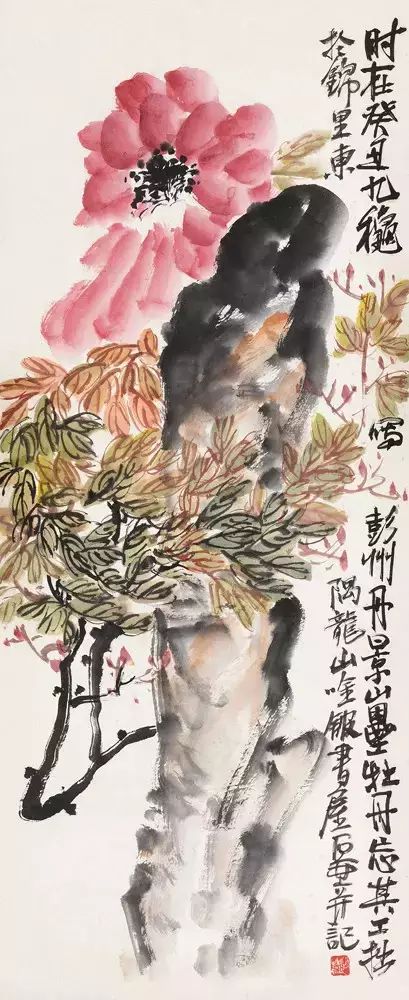 时在癸丑九龝寫彭州丹景山牡丹忘其工拙
於錦里東隅龍山唫書屋石壺并記